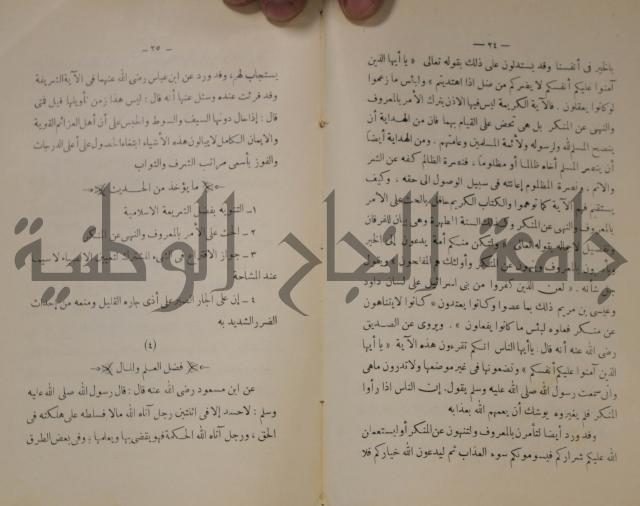 — ٢٤ —
بالخير في أنفسنا وقد يستدلون على ذلك بقوله تعالى « يا أيها الذين
آمنوا عليكم أنفسكم لا يضركم من ضل اذا اهتديتم » ولبئس ما زعموا
لو كانوا يعقلون . فالآية الكريمة ليس فيها الاذن بترك الأمر بالمعروف
والنهى عن المنكر بل هى تحض على القيام بهما فان من الهداية أن
ينصح المسلم لله ولرسوله ولأئمة المسلمين وعامتهم . ومن الهداية أيضا
أن ينصر المسلم أخاه ظالما أو مظلوما ، فنصرة الظالم كفه عن الشر
والاثم ، ونصرة المظلوم إعانته فى سبيل الوصول الى حقه ، وكيف
يستقيم فهم الآية كما توهموا والكتاب الكريم حافل بالحث على الامر
بالمعروف والنهى عن المنكر وكذلك السنة المطهرة وهى بيان للفرقان
وتفصيل لاجماله بقوله تعالى « ولتكن منكم أمة يدعون إلى الخير
ويأمرون بالمعروف وينهون عن المنكر وأولئك هم المفلحون » ويقول
جل شأنه . « لعن الذين كفروا من بنى اسرائيل على لسان داود
وعيسى بن مريم ذلك بما عصوا وكانوا يعتدون » « كانوا لا يتناهون
عن منكر فعلوه لبئس ما كانوا يفعلون » . ويروى عن الصديق
رضى الله عنه أنه قال : يا أيها الناس انكم تقرءون هذه الآية « يا أيها
الذين آمنوا عليكم أنفسكم » وتضعونها فى غير موضعها ولا تدرون ما هى
وانى سمعت رسول الله صلى الله عليه وسلم يقول . إن الناس اذا رأوا
المنكر فلم يغيروه يوشك أن يعمهم الله بعذابه
وقد ورد أيضا لتأمرن بالمعروف ولتنهون عن المنكر أو ليستعملن
الله عليكم شراركم فيسومونكم سوء العذاب ثم ليدعون الله خياركم فلا
— ٢٥ —
يستجاب لهم ، وقد ورد عن ابن عباس رضى الله عنهما فى الآية الشريفة
وقد قرئت عنده وسئل عنها أنه قال : ليس هذا زمن تأويلها قيل فمتى
قال : إذا حال دونها السيف والسوط والحبس على أن أهل العزائم القوية
والايمان الكامل لا يبالون هذه الأشياء ابتغاء الحصول على أعلى الدرجات
والفوز بأسمى مراتب الشرف والثواب
ما يؤخذ من الحديث
١ – التنويه بفضل الشريعة الاسلامية
٢ – الحث على الأمر بالمعروف والنهى عن المنكر
٣ – جواز الاقتراع فى الشىء المشترك لتعيين الانصباء لا سيما
عند المشاحة
٤ – إن على الجار الصبر على أذى جاره القليل ومنعه من إحداث
الضرر الشديد به
(٤)
فضل العلم والمال
عن ابن مسعود رضى الله عنه قال : قال رسول الله صلى الله عليه
وسلم : لا حسد إلا فى اثنتين رجل آتاه الله مالا فسلطه على هلكته فى
الحق ، ورجل آتاه الله الحكمة فهو يقضى بها ويعلمها ، وفى بعض الطرق
جامعة النجاح الوطنية